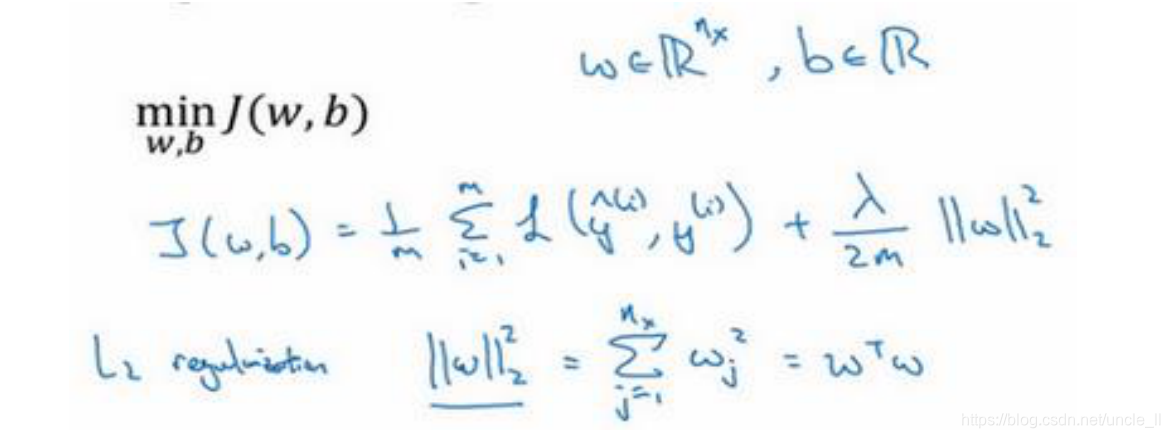 w ∈ ℝ^{n_x}, b ∈ ℝ
min_{w,b} J(w, b)
J(w,b) = \frac{1}{m} \sum_{i=1}^{m} ℒ(ŷ^{(i)}, y^{(i)}) + \frac{λ}{2m} ||w||_2^2
L_2 regularization ||w||_2^2 = \sum_{j=1}^{n_x} w_j^2 = w^T w
https://blog.csdn.net/uncle_ll